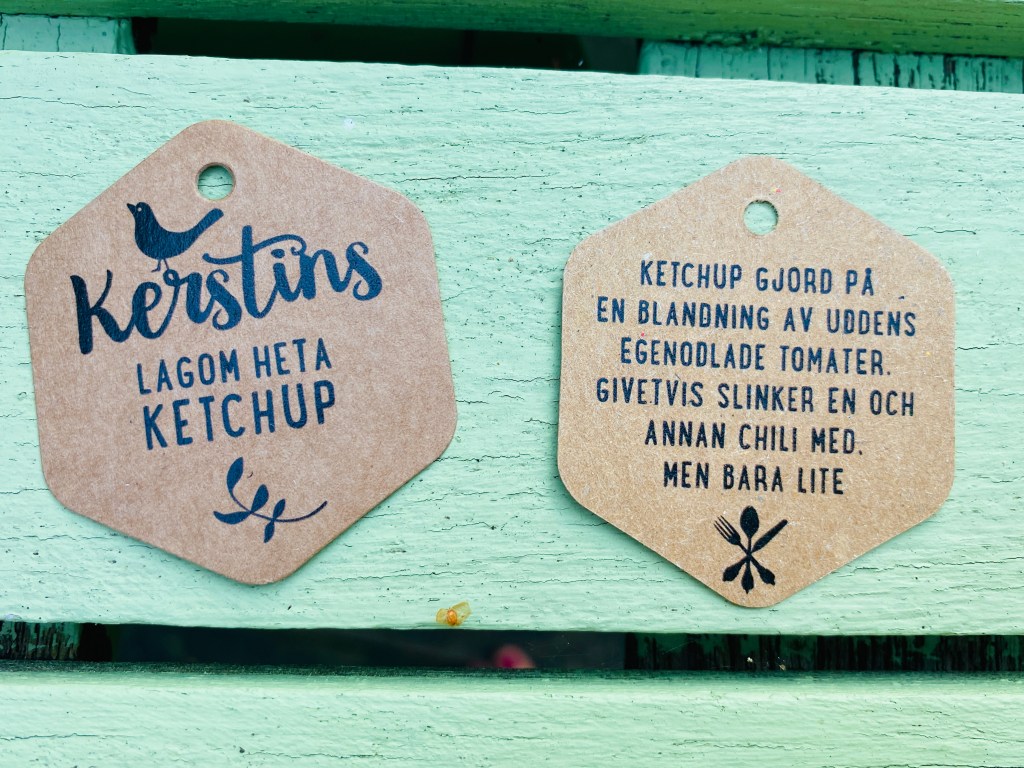 Kerstins
LAGOM HETA
KETCHUP
KETCHUP GJORD PÅ
EN BLANDNING AV UDDENS
EGENODLADE TOMATER.
GIVETVIS SLINKER EN OCH
ANNAN CHILI MED.
MEN BARA LITE